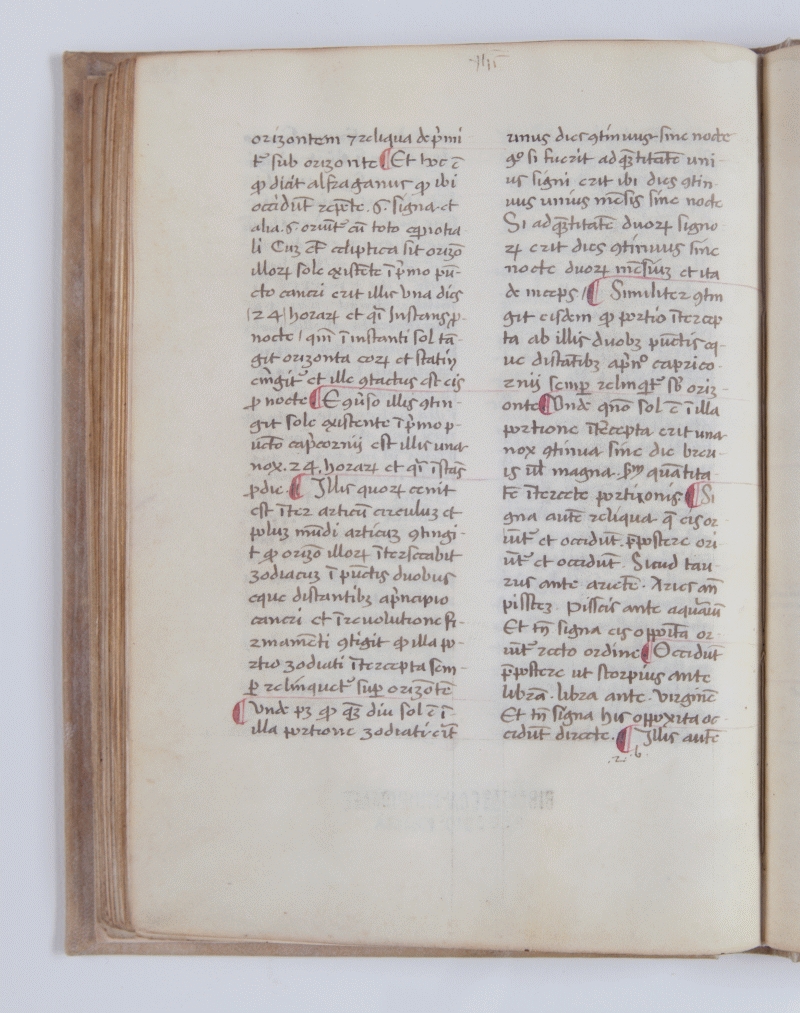 orizontem ⁊ reliqua dep̄mi
t᷒ sub orizonte ¶ Et hoc ē
ꝙ dicit alfraganus ꝙ ibi
occidūt rep̄ete .6. signa et
alia .6. oriūt᷒ cū toto eq̄notia
li Cuꝫ ecliptica sit orizō
illoꝝ sole existēte ī p̄mo pū-
cto cancri erit illis vna dies
24 horaꝝ et q̄i Instans p̲
nocte / qm̄ ī instanti sol tā-
git orizonta eoꝝ et statim
et ille ꝯtactus est eis
ꝓ nocte ¶ E ꝯūso illis ꝯtin-
git sole existente ī p̄mo p-
ūcto cap̄cornij est illis una
nox .24. horaꝝ et q̄i īstās
ꝓ die. ¶ Illis quoꝝ cenit
est īter articū circuluꝫ et
poluꝫ mūdi articuꝫ ꝯtingi-
t ꝙ orizō illoꝝ īterseccabit
zodiacuꝫ ī pūctis duobus
eque distantibꝫ a p̄ncipio
cancri et ī reuolutione fi-
rmamēti ꝯtigit ꝙ illa po-
rtio zodiati ītercepta sem-
p̲ relinquet᷒ sup̲ orizōtē
¶ Vnde pꝫ ꝙ q̄ꝫ diu sol ē ī
illa portione zodiati erit
unus dies ꝯtinuus sine nocte
g° si fuerit ad q̄titatē uni-
us signi erit ibi dies ꝯtin-
uus unius mēsis sine nocte
Si ad q̄titatē duoꝝ signo
ꝝ erit dies ꝯtinuus sine
nocte duoꝝ mēsiuꝫ et ita
deinceps / ¶ Similiter ꝯtin
git eisdem ꝙ portio ītercep
ta ab illis duobꝫ pūctis eq-
ue distātibꝫ a p̄n° caprico-
rnij semp̲ relinq̄t᷒ sb̄ oriz-
onte ¶ Vnde qn̄o sol ē ī illa
portione ītercepta erit una
nox ꝯtinua sine die breu-
is ul̄ magna quātita
tē ītercete portionis ¶ Si
gna autē reliqua q̄ eis or
iūt᷒ et occidūt. p̄postere ori
ūt᷒ et occidūt. Sicud tau-
rus ante arietē. Aries an̄
pisseꝫ. Pisscis ante aquariū
Et tn̄ signa eis oppoīta or-
iūt᷒ recto ordine ¶ Occidūt
p̄postere ut scorpius ante
librā. libra ante. virginē
Et tn̄ signa his opposita oc-
cidūt directe. ¶ Illis autē